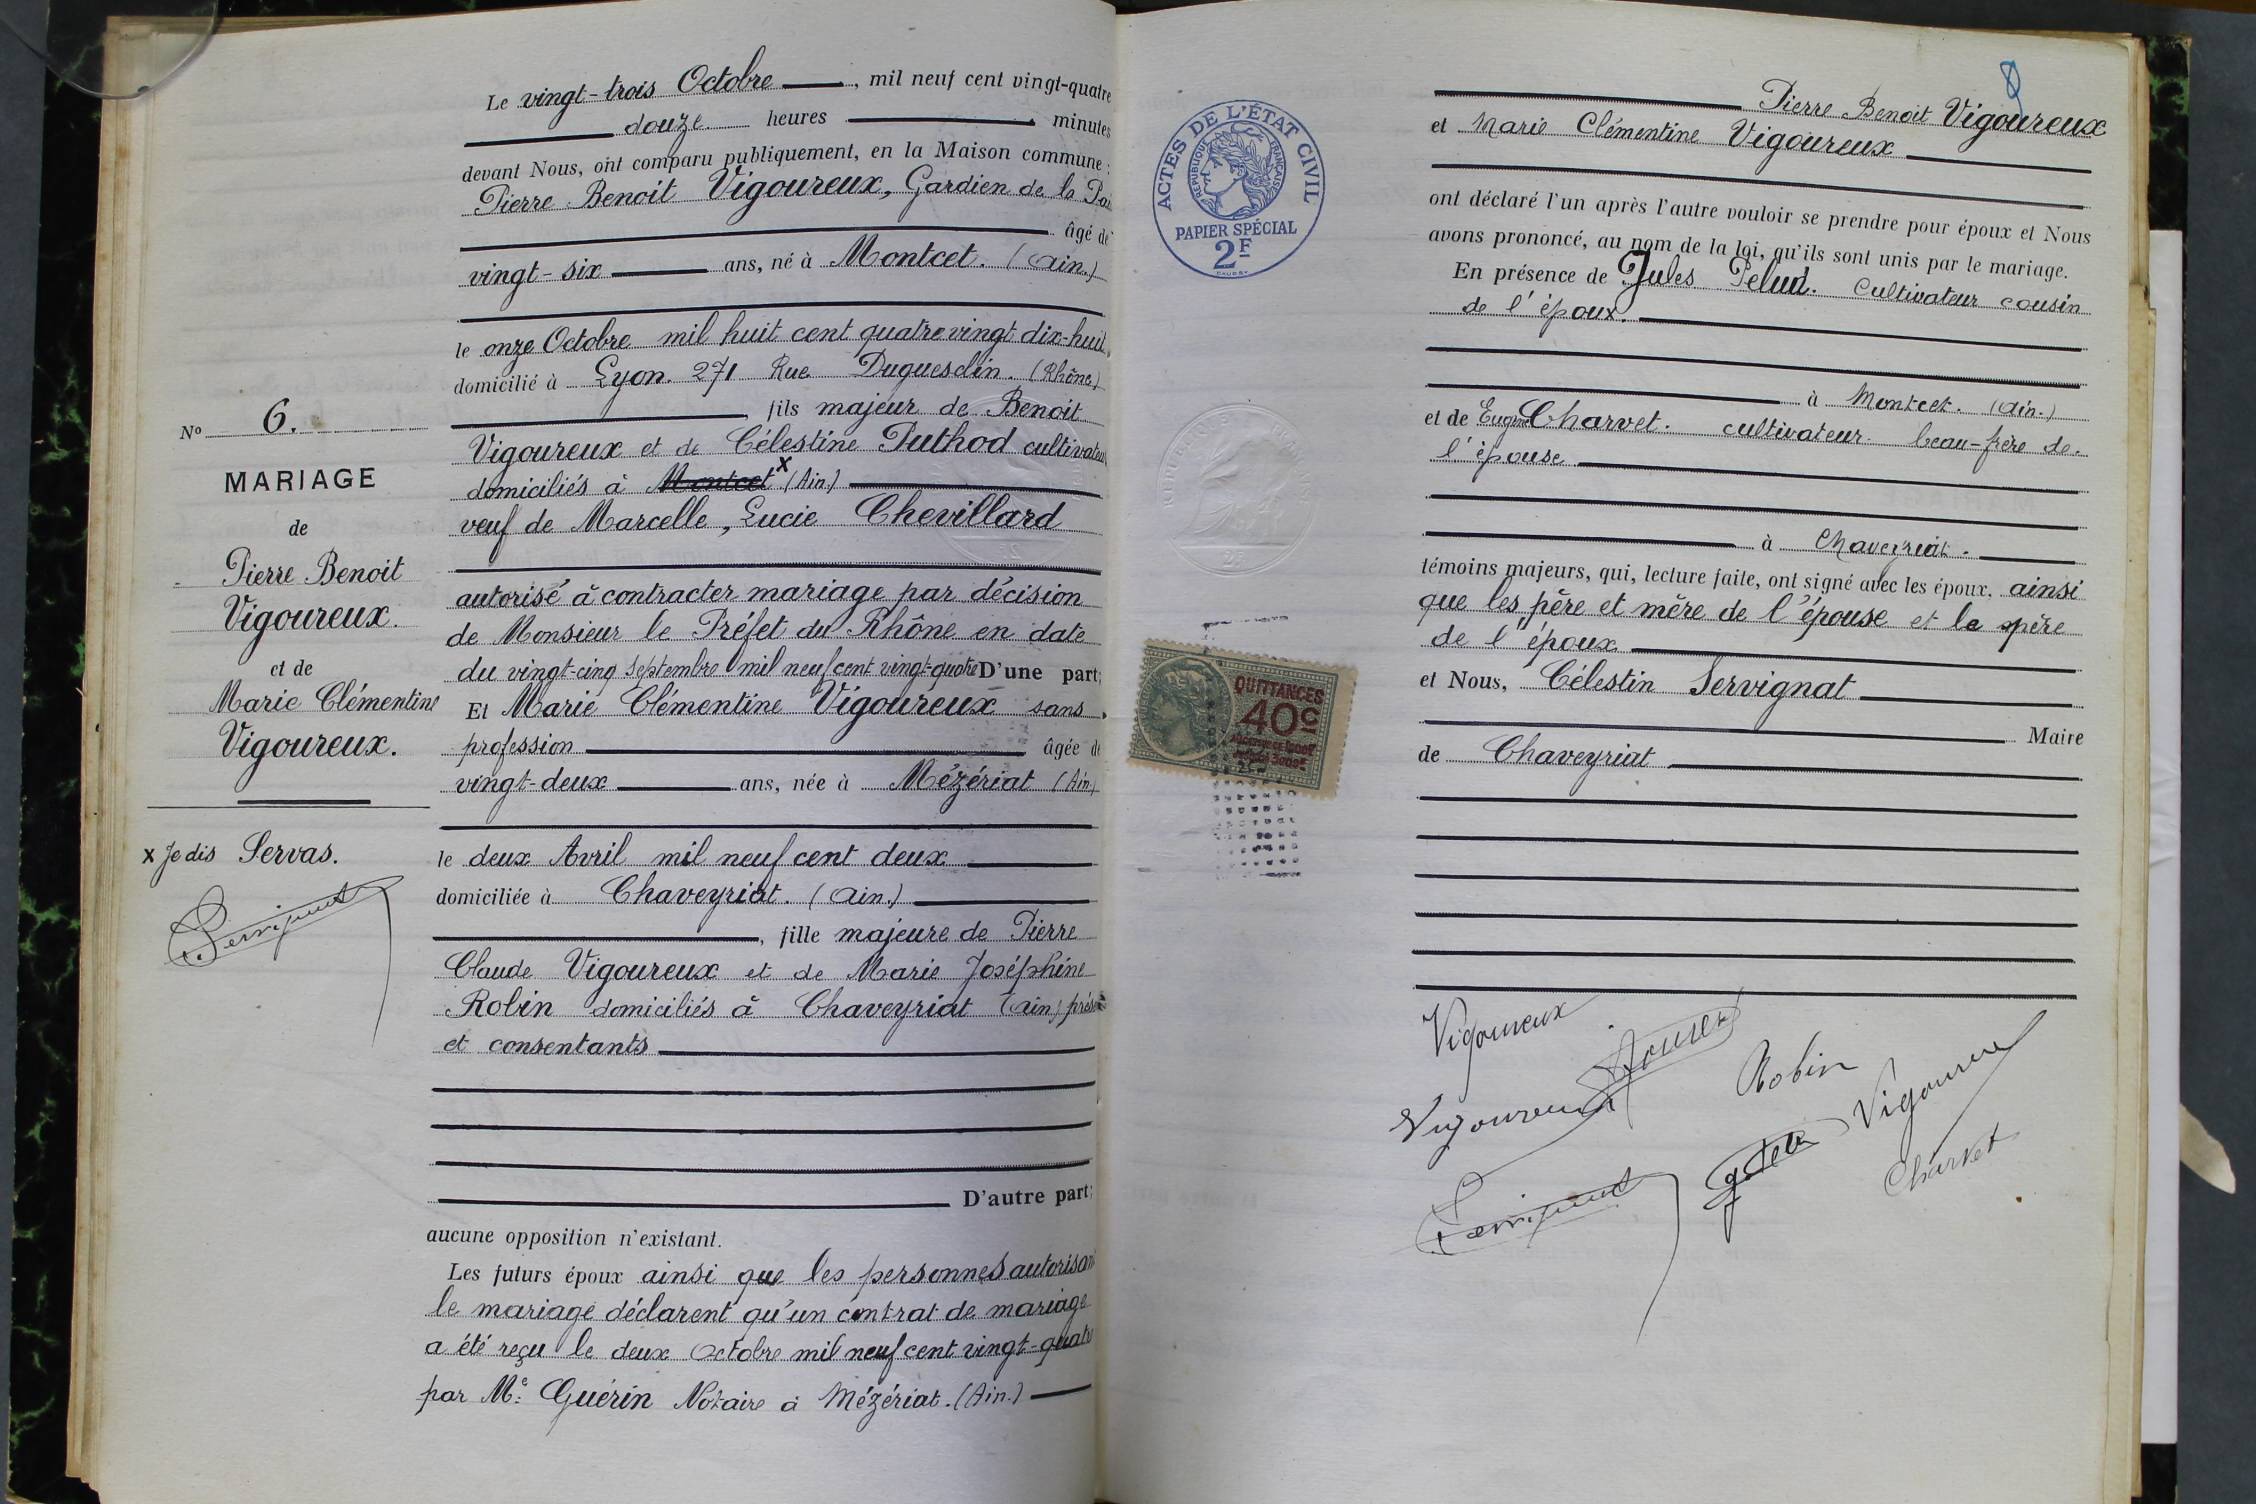 Le vingt-trois Octobre, mil neuf cent vingt-quatre
douze heures minutes
devant Nous, ont comparu publiquement, en la Maison commune :
Pierre Benoit Vigoureux, Gardien de la Pai
âgé de
vingt-six ans, né à Montcet. (Ain.)
le onze Octobre mil huit cent quatre vingt dix-huit
domicilié à Lyon. 271 Rue Duguesclin. (Rhône)
fils majeur de Benoit
Vigoureux et de Célestine Puthod cultivateurs
domiciliés à Montcet x (Ain)
veuf de Marcelle, Lucie Chevillard
autorisé à contracter mariage par décision
de Monsieur le Préfet du Rhône en date
du vingt-cinq Septembre mil neuf cent vingt-quatre D'une part;
Et Marie Clémentine Vigoureux sans
profession âgée de
vingt-deux ans, née à Mézériat (Ain)
le deux Avril mil neuf cent deux
domiciliée à Chaveyriat. (Ain.)
, fille majeure de Pierre
Claude Vigoureux et de Marie Joséphine
Robin domiciliés à Chaveyriat (Ain)
et consentants
D'autre part;
aucune opposition n'existant.
Les futurs époux ainsi que les personnes autorisant
le mariage déclarent qu'un contrat de mariage
a été reçu le deux Octobre mil neuf cent vingt-quatre
par Me: Guérin Notaire à Mézériat. (Ain.)
No 6.
MARIAGE
de
Pierre Benoit
Vigoureux.
et de
Marie Clémentine
Vigoureux.
x Je dis Servas.
8
ACTES DE L'ÉTAT CIVIL
RÉPUBLIQUE FRANÇAISE
PAPIER SPÉCIAL
2F
QUITTANCES
40c
Pierre Benoit Vigoureux
et Marie Clémentine Vigoureux
ont déclaré l'un après l'autre vouloir se prendre pour époux et Nous
avons prononcé, au nom de la loi, qu'ils sont unis par le mariage.
En présence de Jules Pelud. Cultivateur cousin
de l'époux.
à Montcet. (Ain.)
et de Eugène Charvet. cultivateur. beau-frère de.
l'épouse
à Chaveyriat.
témoins majeurs, qui, lecture faite, ont signé avec les époux, ainsi
que les père et mère de l'épouse et le père
de l'époux
et Nous, Célestin Servignat
Maire
de Chaveyriat
Vigoureux
Vigoureux
Robin
Vigoureux
Charvet